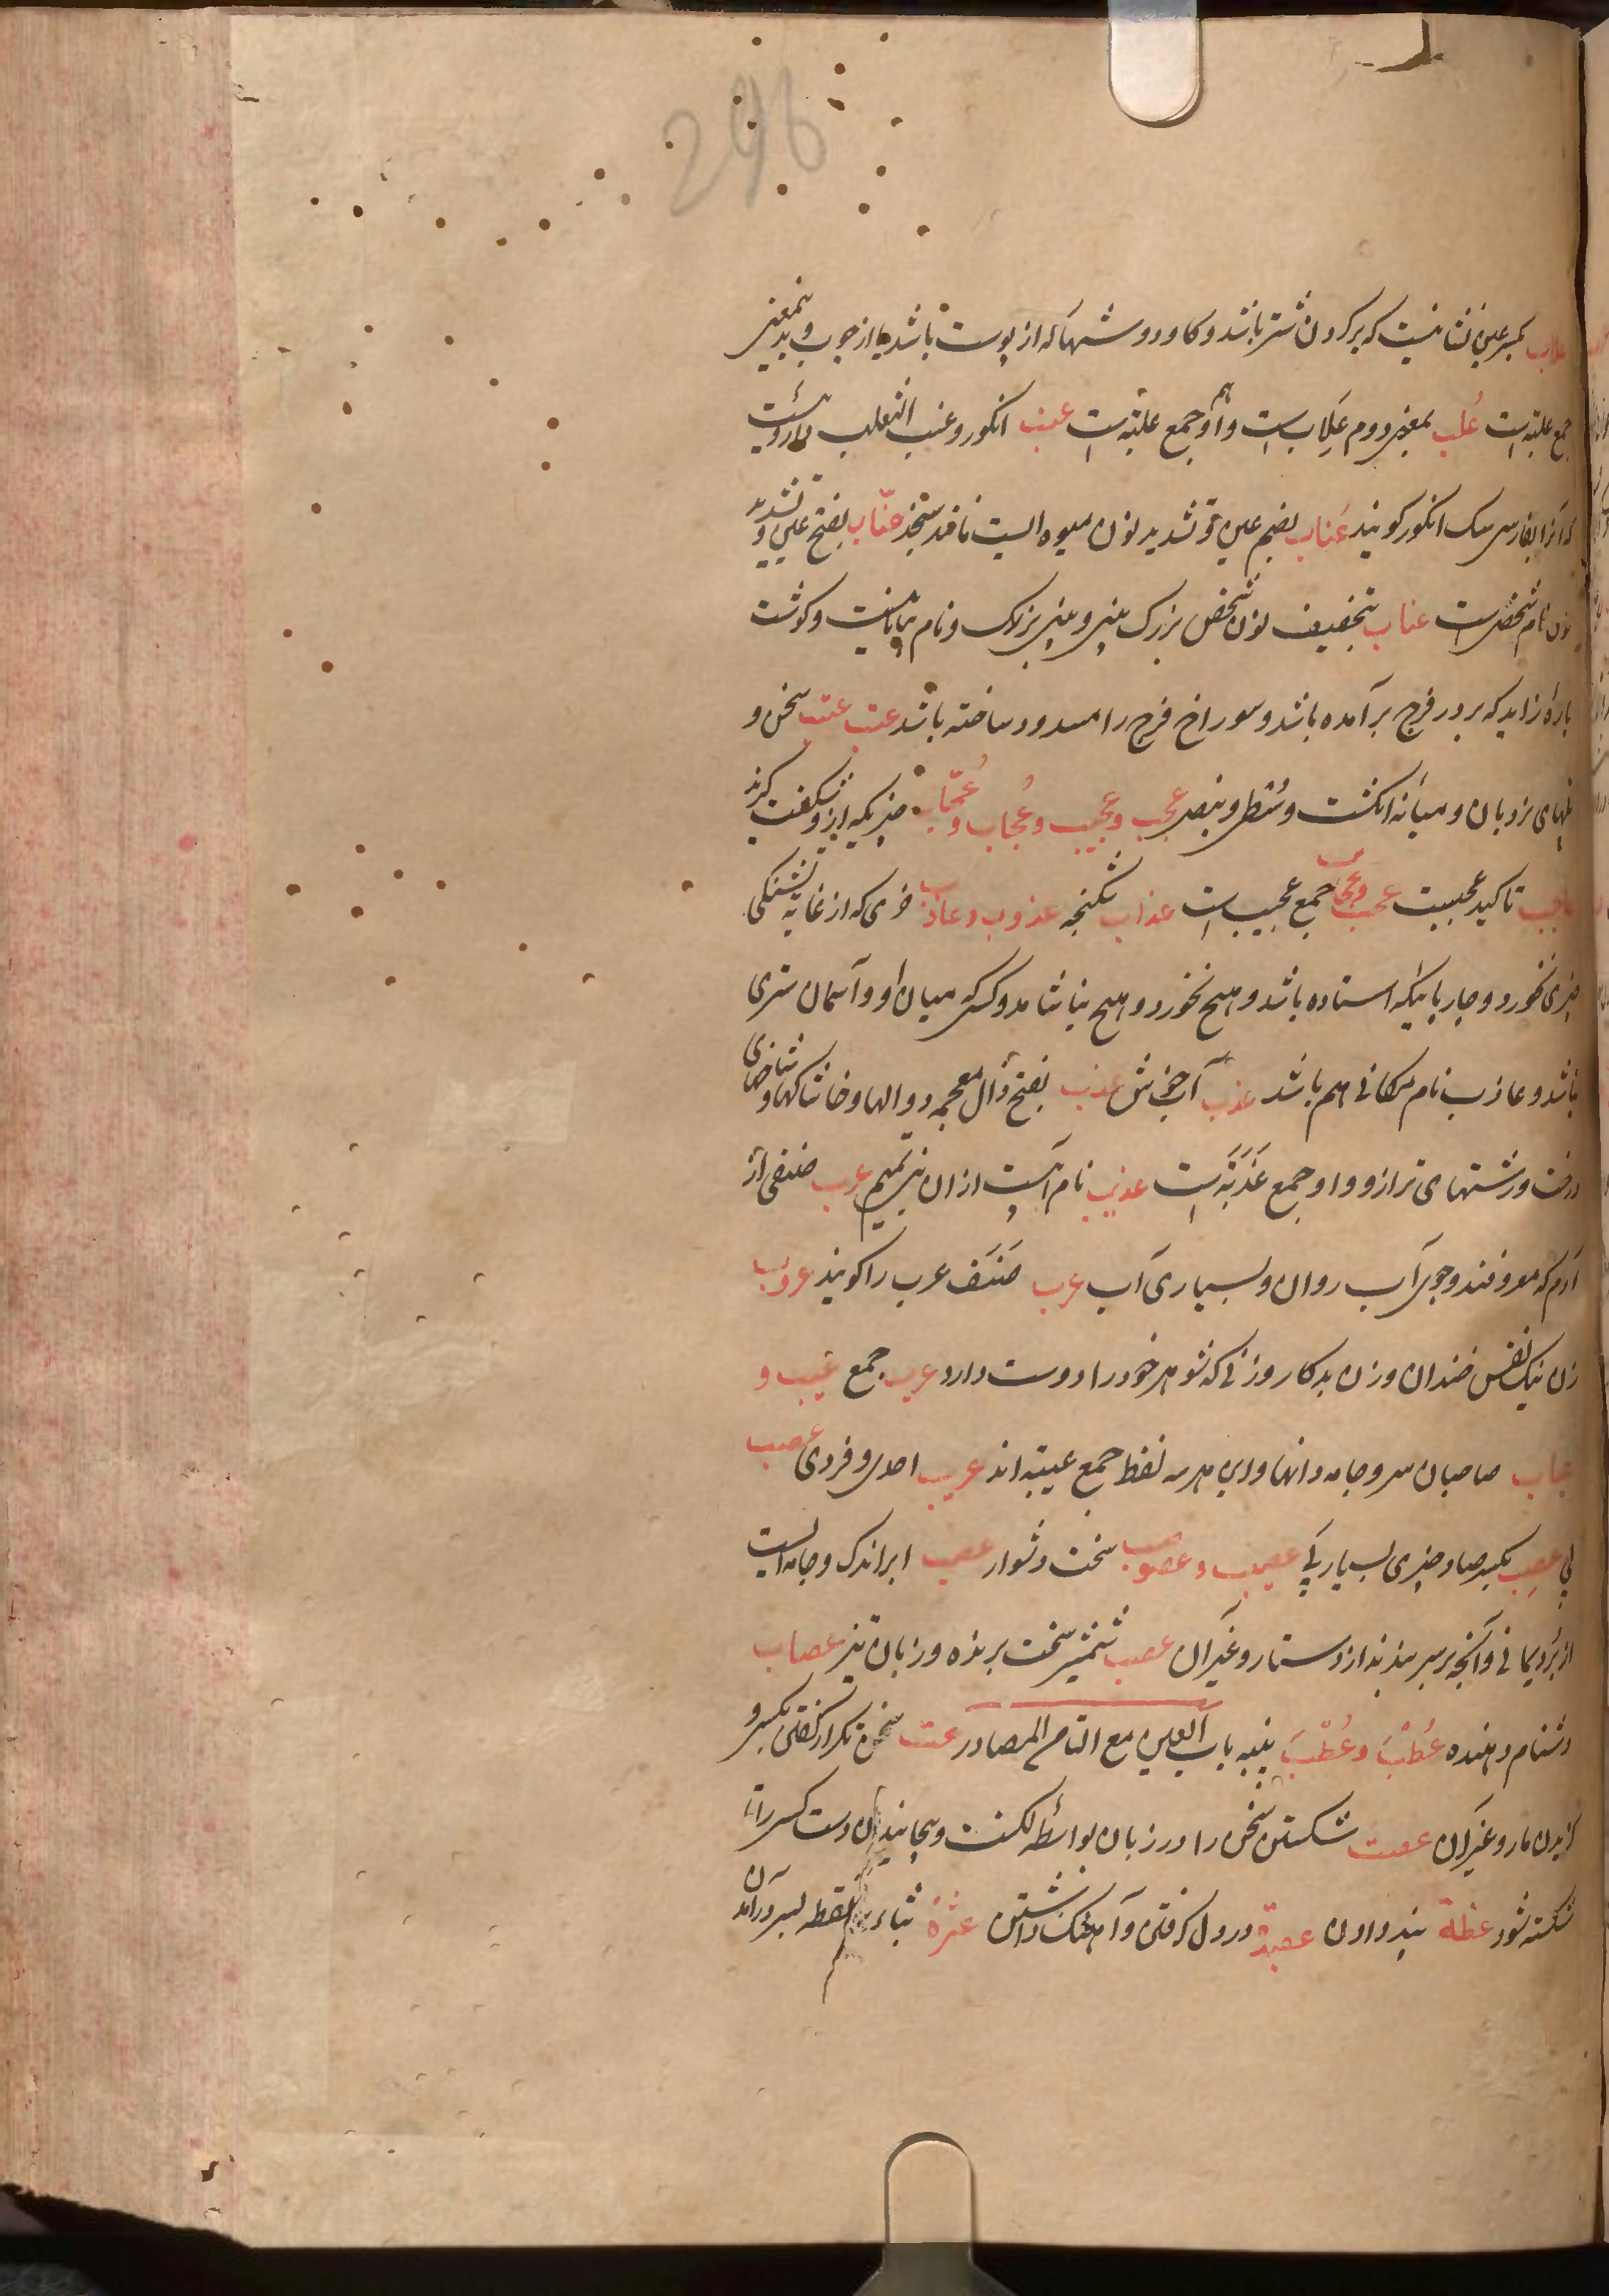 296
علاب بکسر عین نشانیست که بر گردن شتر باشد و کاودوشها که از پوست باشد یا از چوب و بدینمعنی
جمع علبة است عُلب بمعنی دوم عَلاب است و او هم جمع علبة است عنب انکور و عنب الثعلب داروئیست
که آنرا بفارسی سک انکور کویند عُناب بضم عین و تشدید نون میوه ایست مانند سنجد عنّاب بفتح عین و تشدید
نون نام شخصی است عناب بتخفیف نون شخص بزرک بینی و بینی بزرک و نام و کوشت
پارهٔ زاید که بر در فرج بر آمده باشد و سوراخ فرج را مسدود ساخته باشد عتب عتب سخن و
پایهای نردبان و میانه انکشت وسطی و بنصر عجب و عجیب و عُجاب و عُجّاب چیزیکه ازو شکفت کیرند
عاجب تاکید عجبیت عجب و عجاب جمع عجیب است عذاب شکنجه عذوب و عاذب خری که از غایة تشنکی
چیزی نخورد و چارپائیکه استاده باشد و هیچ نخورد و هیچ نیاشامد و کسی که میان او و آسمان ستری
نباشد و عاذب نام مکانی هم باشد عذب آب خوش عذب بفتح ذال معجمه دوالها و خاشاکها و شاخهای
درخت و رشتهای ترازو و او جمع عَذَبَة است عذیب نام آبیست از ان بنی تمیم عرب صنفی از
آدم که معروفند و جوی آب روان و بسیاری آب عرب صنف عرب را کویند عروب
زن نیک نفس خندان و زن بدکار و زنی که شوهر خود را دوست دارد عرب جمع عیب و
عیاب صاحبان سر و جامه دانها و این هر سه لفظ جمع عیبه اند عریب احدی و فردی عصب
پی عصِب بکسر صاد چیزی بسیار پی عصیب و عصوصب سخت و دشوار عصب ابر اندک و جامه ایست
از بُرد یمانی و آنچه بر سر بندند از دستار و غیر آن عصب شمشیر سخت برنده و زبان تیز عصاب
دشنام دهنده عُطْبَ و عُطُبَ پنبه باب العین مع التاء من المصادر عت سخن تکرار کفتن بکسی و
کزیدن مار و غیر آن عفت شکستن سخن را در زبان بواسطه لکنت و پیچانیدن دست کسی را تا
شکسته شود عظة پند دادن عصبة در دل کرفتن و آهنک داشتن عثرة بثاء سه نقطه بسر درآمدن